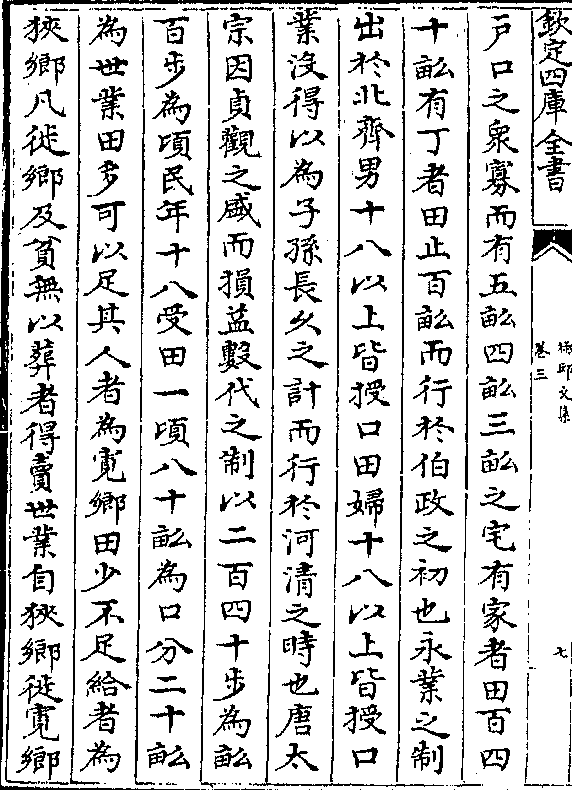 欽定四庫全書
卷三
七
戸口之衆寡而有五畝四畝三畝之宅有家者田百四
十畝有丁者田止百畝而行於伯政之初也永業之制
出於北齊男十八以上皆授口田婦十八以上皆授口
業沒得以為子孫長久之計而行於河清之時也唐太
宗因貞觀之盛而損益數代之制以二百四十步為畝
百步為頃民年十八受田一頃八十畝為口分二十畝
為世業田多可以足其人者為寛鄉田少不足給者為
狹鄉凡徙鄉及貧無以葬者得賣世業自狹鄉徙寛鄉